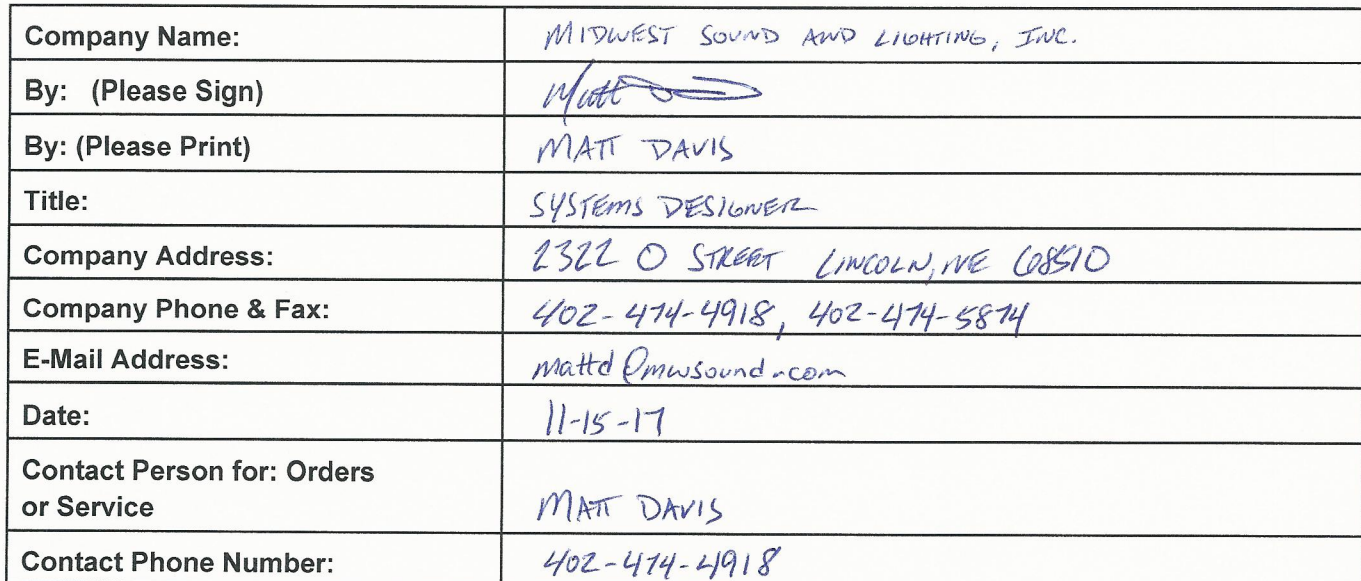 Company Name: MIDWEST SOUND AND LIGHTING, INC.
By: (Please Sign) Matt
By: (Please Print) MATT DAVIS
Title: SYSTEMS DESIGNER
Company Address: 2322 O STREET LINCOLN, NE 68510
Company Phone & Fax: 402-474-4918, 402-474-5874
E-Mail Address: mattd@mwsound.com
Date: 11-15-17
Contact Person for: Orders
or Service MATT DAVIS
Contact Phone Number: 402-474-4918